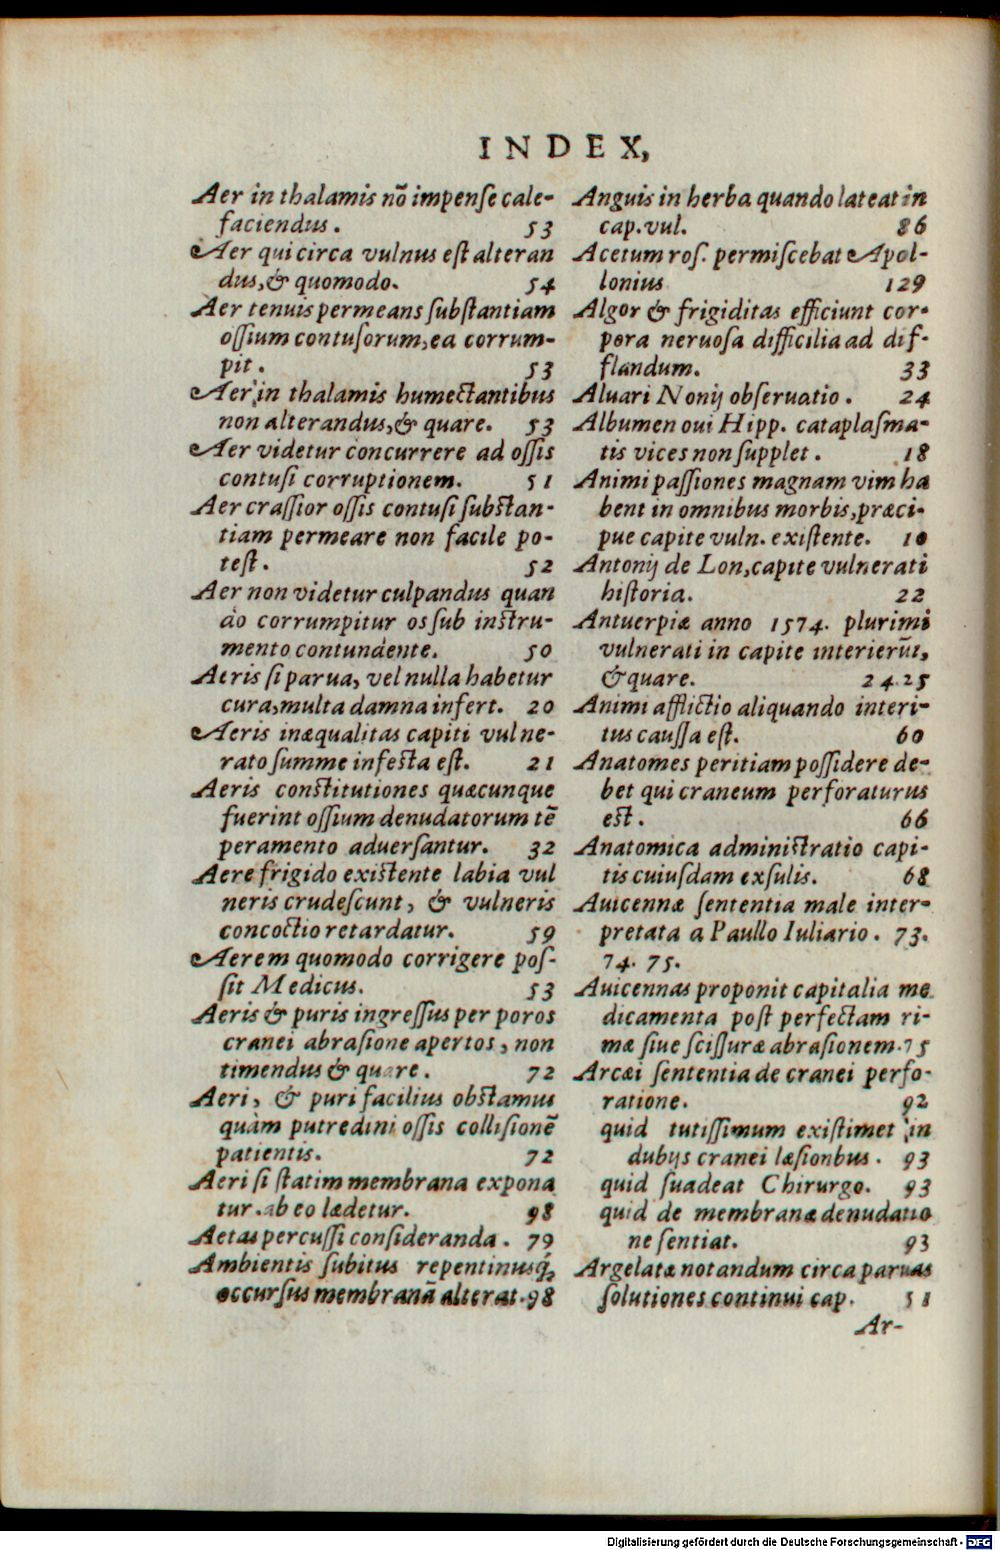 INDEX,
Aer in thalamis nõ impenſe cale-
faciendus. 53
Aer qui circa vulnus eſt alteran
dus, & quomodo. 54
Aer tenuis permeans ſubſtantiam
oſſium contuſorum, ea corrum-
pit. 53
Aer in thalamis humectantibus
non alterandus, & quare. 53
Aer videtur concurrere ad oſſis
contuſi corruptionem. 51
Aer craſſior oſſis contuſi ſubſtan-
tiam permeare non facile po-
teſt. 52
Aer non videtur culpandus quan
do corrumpitur os ſub inſtru-
mento contundente. 50
Aeris ſi parua, vel nulla habetur
cura, multa damna infert. 20
Aeris inæqualitas capiti vulne-
rato ſumme infeſta eſt. 21
Aeris conſtitutiones quæcunque
fuerint oſſium denudatorum tẽ
peramento aduerſantur. 32
Aere frigido exiſtente labia vul
neris crudeſcunt, & vulneris
concoctio retardatur. 59
Aerem quomodo corrigere poſ-
ſit Medicus. 53
Aeris & puris ingreſſus per poros
cranei abraſione apertos, non
timendus & quare. 72
Aeri, & puri facilius obſtamus
quàm putredini oſſis colliſionẽ
patientis. 72
Aeri ſi ſtatim membrana expona
tur. ab eo lædetur. 98
Aetas percuſſi conſideranda. 79
Ambientis ſubitus repentinusq́;
occurſus membranã alterat. 98
Anguis in herba quando lateat in
cap. vul. 86
Acetum roſ. permiſcebat Apol-
lonius 129
Algor & frigiditas efficiunt cor-
pora neruoſa difficilia ad dif-
flandum. 33
Aluari Nonij obſeruatio. 24
Albumen oui Hipp. cataplaſma-
tis vices non ſupplet. 18
Animi paſſiones magnam vim ha
bent in omnibus morbis, præci-
pue capite vuln. exiſtente. 10
Antonij de Lon, capite vulnerati
hiſtoria. 22
Antuerpiæ anno 1574. plurimi
vulnerati in capite interierũt,
& quare. 24.25
Animi afflictio aliquando interi-
tus cauſſa eſt. 60
Anatomes peritiam poſſidere de-
bet qui craneum perforaturus
eſt. 66
Anatomica adminiſtratio capi-
tis cuiuſdam exſulis. 68
Auicennæ ſententia male inter-
pretata a Paullo Iuliario. 73.
74. 75.
Auicennas proponit capitalia me
dicamenta poſt perfectam ri-
mæ ſiue ſciſſuræ abraſionem. 75
Arcæi ſententia de cranei perfo-
ratione. 92
quid tutiſſimum exiſtimet in
dubijs cranei læſionbus. 93
quid ſuadeat Chirurgo. 93
quid de membranæ denudatio
ne ſentiat. 93
Argelatæ notandum circa paruas
ſolutiones continui cap. 51
Ar-
Digitalisierung gefördert durch die Deutsche Forschungsgemeinschaft - DFG